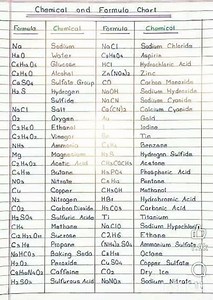 Chemical and Formula Chart
Formula Chemical Formula Chemical
Na Sodium NaCl Sodium Chloride
H2O Water C9H8O4 Aspirin
C6H12O6 Glucose HCl Hydrochloric Acid
C2H6O Alcohol Zn(NO3)2 Zinc
CaSO4 Sulfate Group CO Carbon Monoxide
H2S Hydrogen NaOH Sodium Hydroxide
Sulfide NaCN Sodium Cyanide
NaCl Salt Ca(CN)2 Calcium Cyanide
O2 Oxygen Au Gold
C2H6O Ethanol I Iodine
C2H4O2 Vinegar Sn Tin
NH3 Ammonia C6H6 Benzene
Mg Magnesium H2S Hydrogen Sulfide
C2H4O2 Acetic Acid Acetone
C4H10 Butane H3PO4 Phosphoric Acid
NO3 Nitrate C4H10 Pentane
Cu Copper CH3OH Methanol
N2 Nitrogen HBr Hydrobromic Acid
CO2 Carbon Dioxide H2CO3 Carbonic Acid
H2SO4 Sulfuric Acid Ti Titanium
CH4 Methane NaClO Sodium Hypochlorite
C12H22O11 Sucrose C2H6 Ethane
C3H8 Propane (NH4)2SO4 Ammonium Sulfate
NaHCO3 Baking Soda O3 Ozone
H2O2 Peroxide CuSO4 Copper Sulfate
C8H10N4O2 Caffeine CO2 Dry Ice
H2SO3 Sulfurous Acid NaNO3 Sodium Nitrate